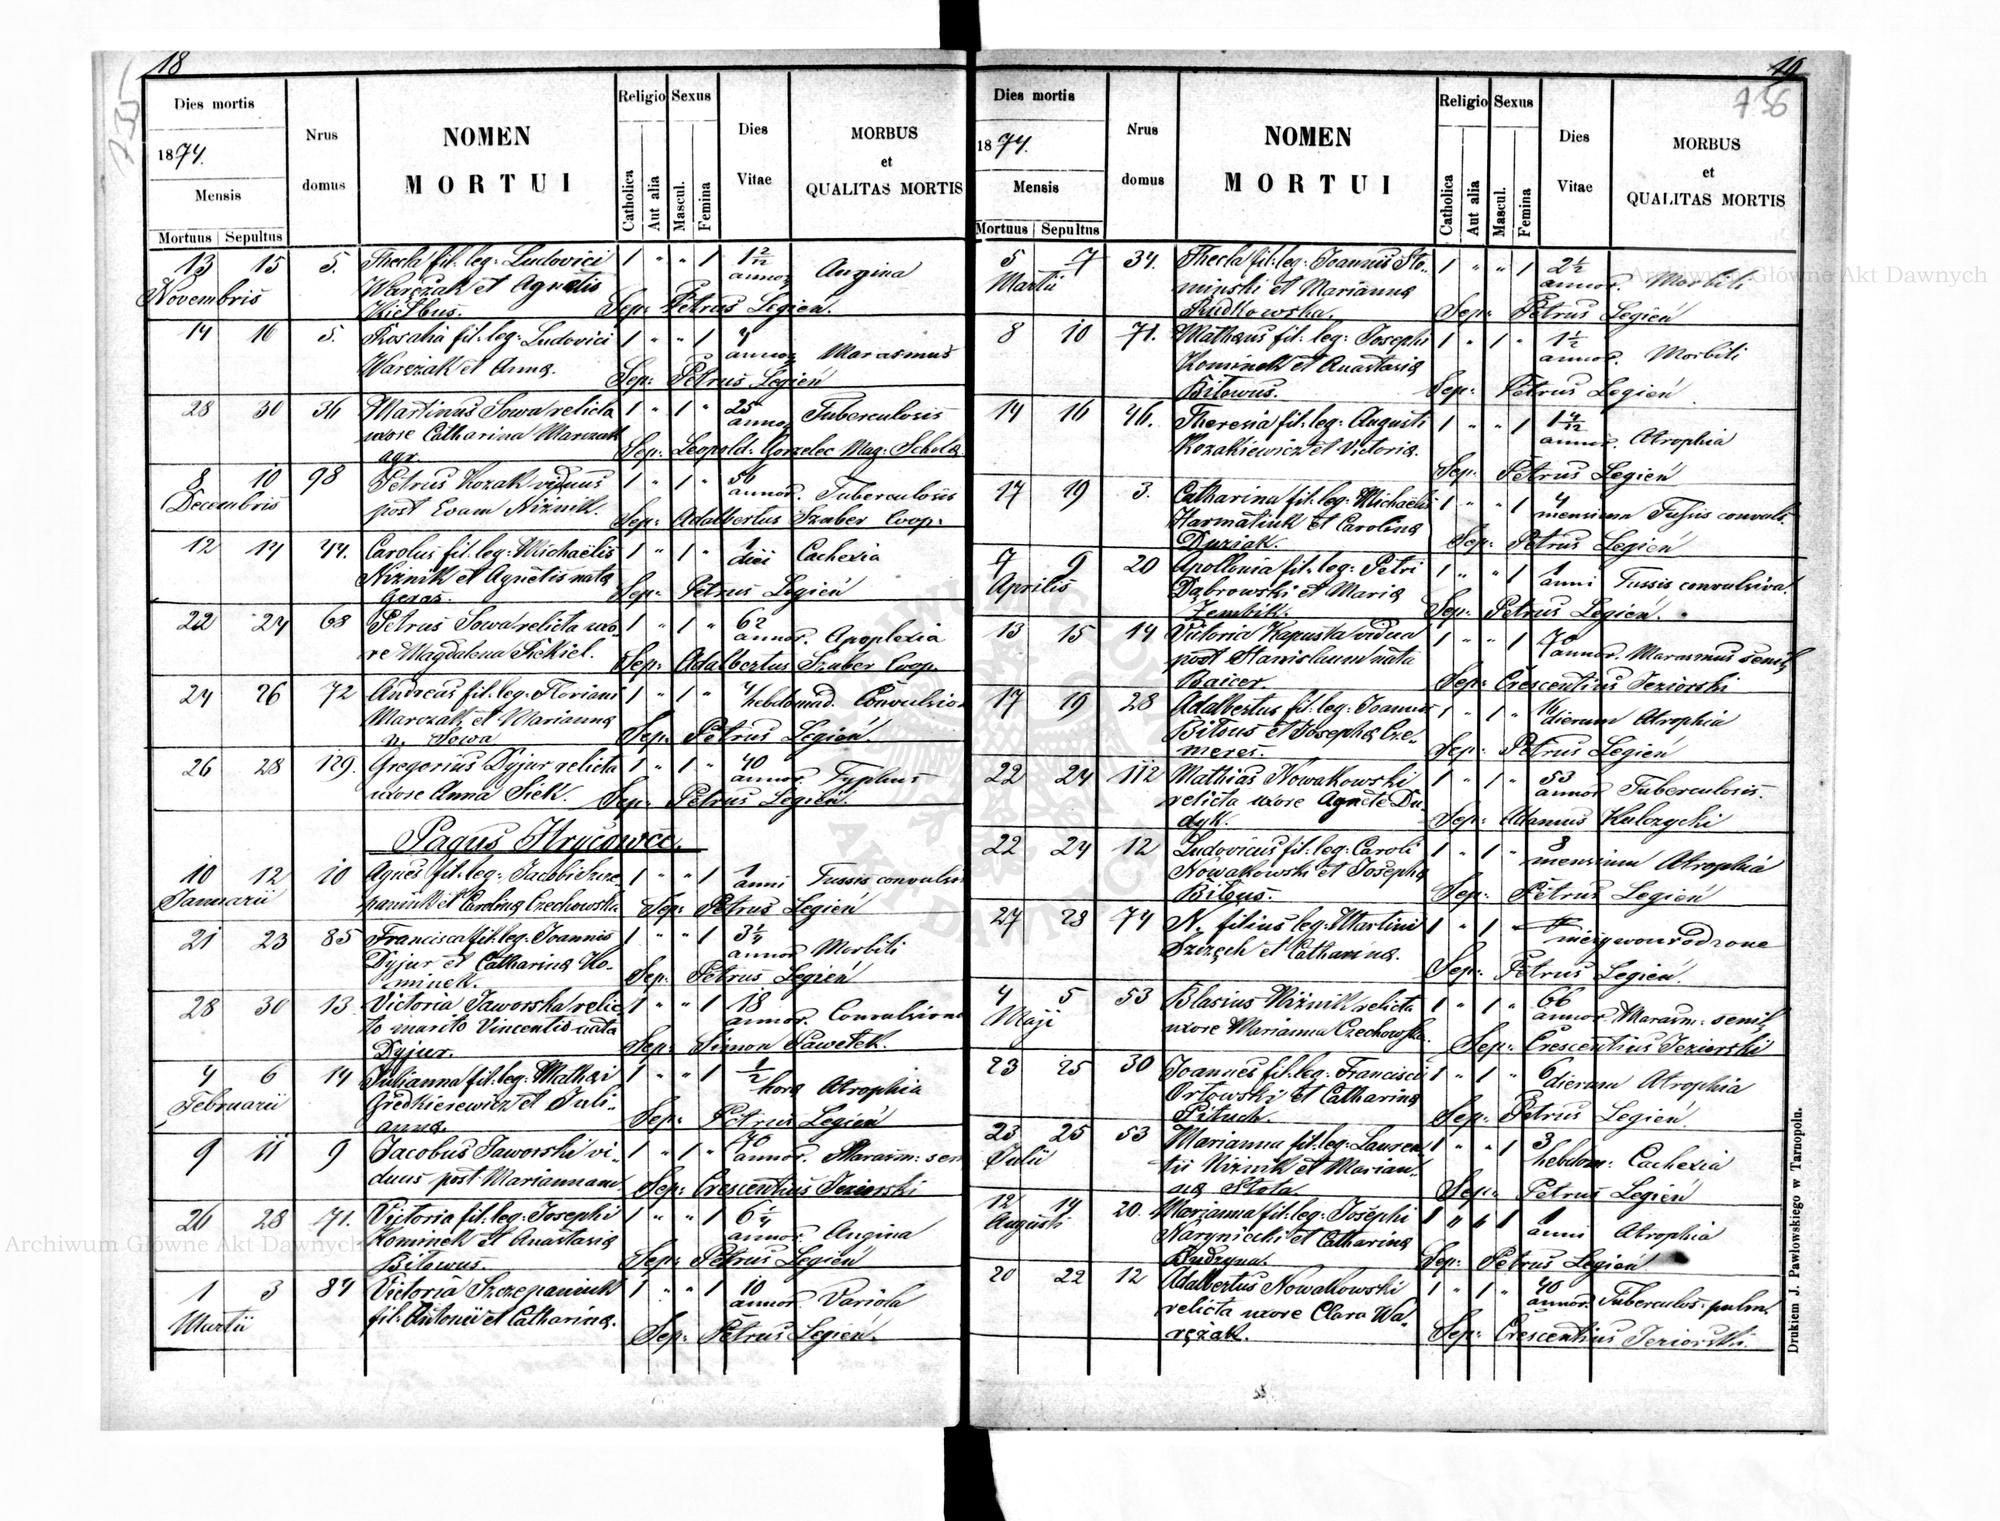 18
735
Dies mortis
1874.
Mensis
Mortuus Sepultus
Nrus
domus
NOMEN
MORTUI
Religio Sexus
Catholica
Aut alia
Mascul.
Femina
Dies
Vitae
MORBUS
et
QUALITAS MORTIS
13 15 5. Thecla fil: leg: Ludovici 1 " " 1 1 2/12
Novembris Warczak et Agnetis annor. Angina
Kiełbus. Sep: Petrus Legień.
14 16 5. Rosalia fil: leg: Ludovici 1 " " 1 4
Warczak et Anna. annor. Marasmus
Sep: Petrus Legień
28 30 36 Martinus Sowa relicta 1 " 1 " 25 Tuberculosis
uxore Catharina Marczak annor.
agr. Sep: Leopold: Gorzelec Mag: Schola
8 10 98 Petrus Kozak viduus 1 " 1 " 56
Decembris post Evam Niżnik. annor. Tuberculosis
Sep: Adalbertus Szaber Coop:
12 14 44. Carolus fil: leg: Michaëlis 1 " 1 " 1 Cachexia
Niżnik et Agnetis nata diei
Geras. Sep: Petrus Legień
22 24 68 Petrus Sowa relicta uxo- 1 " 1 " 62
re Magdalena Siekiel. annor. Apoplexia
Sep: Adalbertus Szaber Coop.
24 26 72 Andreas fil: leg: Floriani 1 " 1 " 4
Marczak et Marianna hebdomad. Convulsio
n. Sowa Sep: Petrus Legień.
26 28 129. Gregorius Dyjur relicta 1 " 1 " 40
uxore Anna Siek. annor. Typhus
Sep: Petrus Legień.
Pagus Hryčowce.
10 12 10 Agnes fil: leg: Jacobi Szcze- 1 " " 1 1
Januarii paniuk et Carolina Czechowska anni Tussis convulsiv
Sep: Petrus Legień
21 23 85 Francisca fil: leg: Joannis 1 " " 1 3 1/4
Dyjur et Catharina Ko- annor Morbili
minek. Sep: Petrus Legień
28 30 13. Victoria Jaworska relic- 1 " " 1 18
to marito Vincentio nata annor. Convulsione
Dyjur. Sep: Simon Pawełek.
4 6 14 Julianna fil: leg: Mathæi 1 " " 1 1/2
Februarii Gredkierewicz et Juli- hora Atrophia
anna. Sep: Petrus Legień
9 11 9 Jacobus Jaworski vi- 1 " 1 " 70
duus post Mariannam annor. Marasm: sen
Sep: Crescentius Jeziorski
26 28 71. Victoria fil: leg: Josephi 1 " " 1 6 1/4
Kominek et Anastasia annor. Angina
Bitowus. Sep: Petrus Legień
1 3 84 Victoria Szczepaniuk 1 " " 1 10
Martii fil: Antonii et Catharina. annor. Variola
Sep: Petrus Legień.
19
736
Dies mortis
1874.
Mensis
Mortuus Sepultus
Nrus
domus
NOMEN
MORTUI
Religio Sexus
Catholica
Aut alia
Mascul.
Femina
Dies
Vitae
MORBUS
et
QUALITAS MORTIS
5 7 34. Thecla fil: leg: Joannis Sło- 1 " " 1 2 1/2
Martii minski et Marianna annor. Morbili
Rudkowska. Sep: Petrus Legień
8 10 71. Mathæus fil: leg: Josephi 1 " 1 " 1 1/2
Kominek et Anastasia annor. Morbili
Bitowus. Sep: Petrus Legień
14 16 46. Theresia fil: leg: Augusti 1 " " 1 1 4/12
Kozakiewicz et Victoria. anni. Atrophia
Sep: Petrus Legień
17 19 3. Catharina fil: leg: Michaelis 1 " " 1 4
Harmatiuk et Carolina mensium Tussis convuls.
Duziak. Sep: Petrus Legień
7 9 20 Apollonia fil: leg: Petri 1 " " 1 1
Aprilis Dąbrowski et Maria anni Tussis convulsiva.
Zembik. Sep: Petrus Legień.
13 15 14 Victoria Kapusta vidua 1 " " 1 70
post Stanislaum nata annor. Marasmus senil,
Baicer. Sep: Crescentius Jeziorski
17 19 28 Adalbertus fil: leg: Joannis 1 " 1 " 16
Bitous et Josepha Cze- dierum Atrophia
meres. Sep: Petrus Legień
22 24 112 Mathias Nowakowski 1 " 1 " 53
relicta uxore Agnete Du annor Tuberculosis.
dyk. Sep: Adamus Kulczycki
22 24 12 Ludovicus fil: leg: Caroli 1 " 1 " 8
Nowakowski et Josepha mensium Atrophia
Bitous. Sep: Petrus Legień
27 28 74 N. filius leg: Martini 1 " 1 "
Szczęch et Catharina. nieżywourodzone
Sep: Petrus Legień.
4 5 53 Blasius Niżnik relicta 1 " 1 " 66
Maji uxore Marianna Czechowska. annor. Marasm: senil,
Sep: Crescentius Jeziorski
23 25 30 Joannes fil: leg: Francisci 1 " 1 " 6
Orłowski et Catharina dierum Atrophia
Pituch. Sep: Petrus Legień.
23 25 53 Marianna fil: leg: Lauren- 1 " " 1 3
Julii tii Niżnik et Marian- hebdom: Cachexia
na Słota. Sep: Petrus Legień
12 14 20. Marianna fil: leg: Josephi 1 " " 1 1
Augusti Narynicki et Catharina anni Atrophia
Budzyna. Sep: Petrus Legień
20 22 12 Adalbertus Nowakowski 1 " 1 " 40
relicta uxore Clara Wa- annor. Tuberculos: pulm.
rczak. Sep: Crescentius Jeziorski.
Drukiem J. Pawłowskiego w Tarnopolu.
Archiwum Główne Akt Dawnych
Archiwum Główne Akt Dawnych
ARCHIWUM GŁÓWNE AKT DAWNYCH